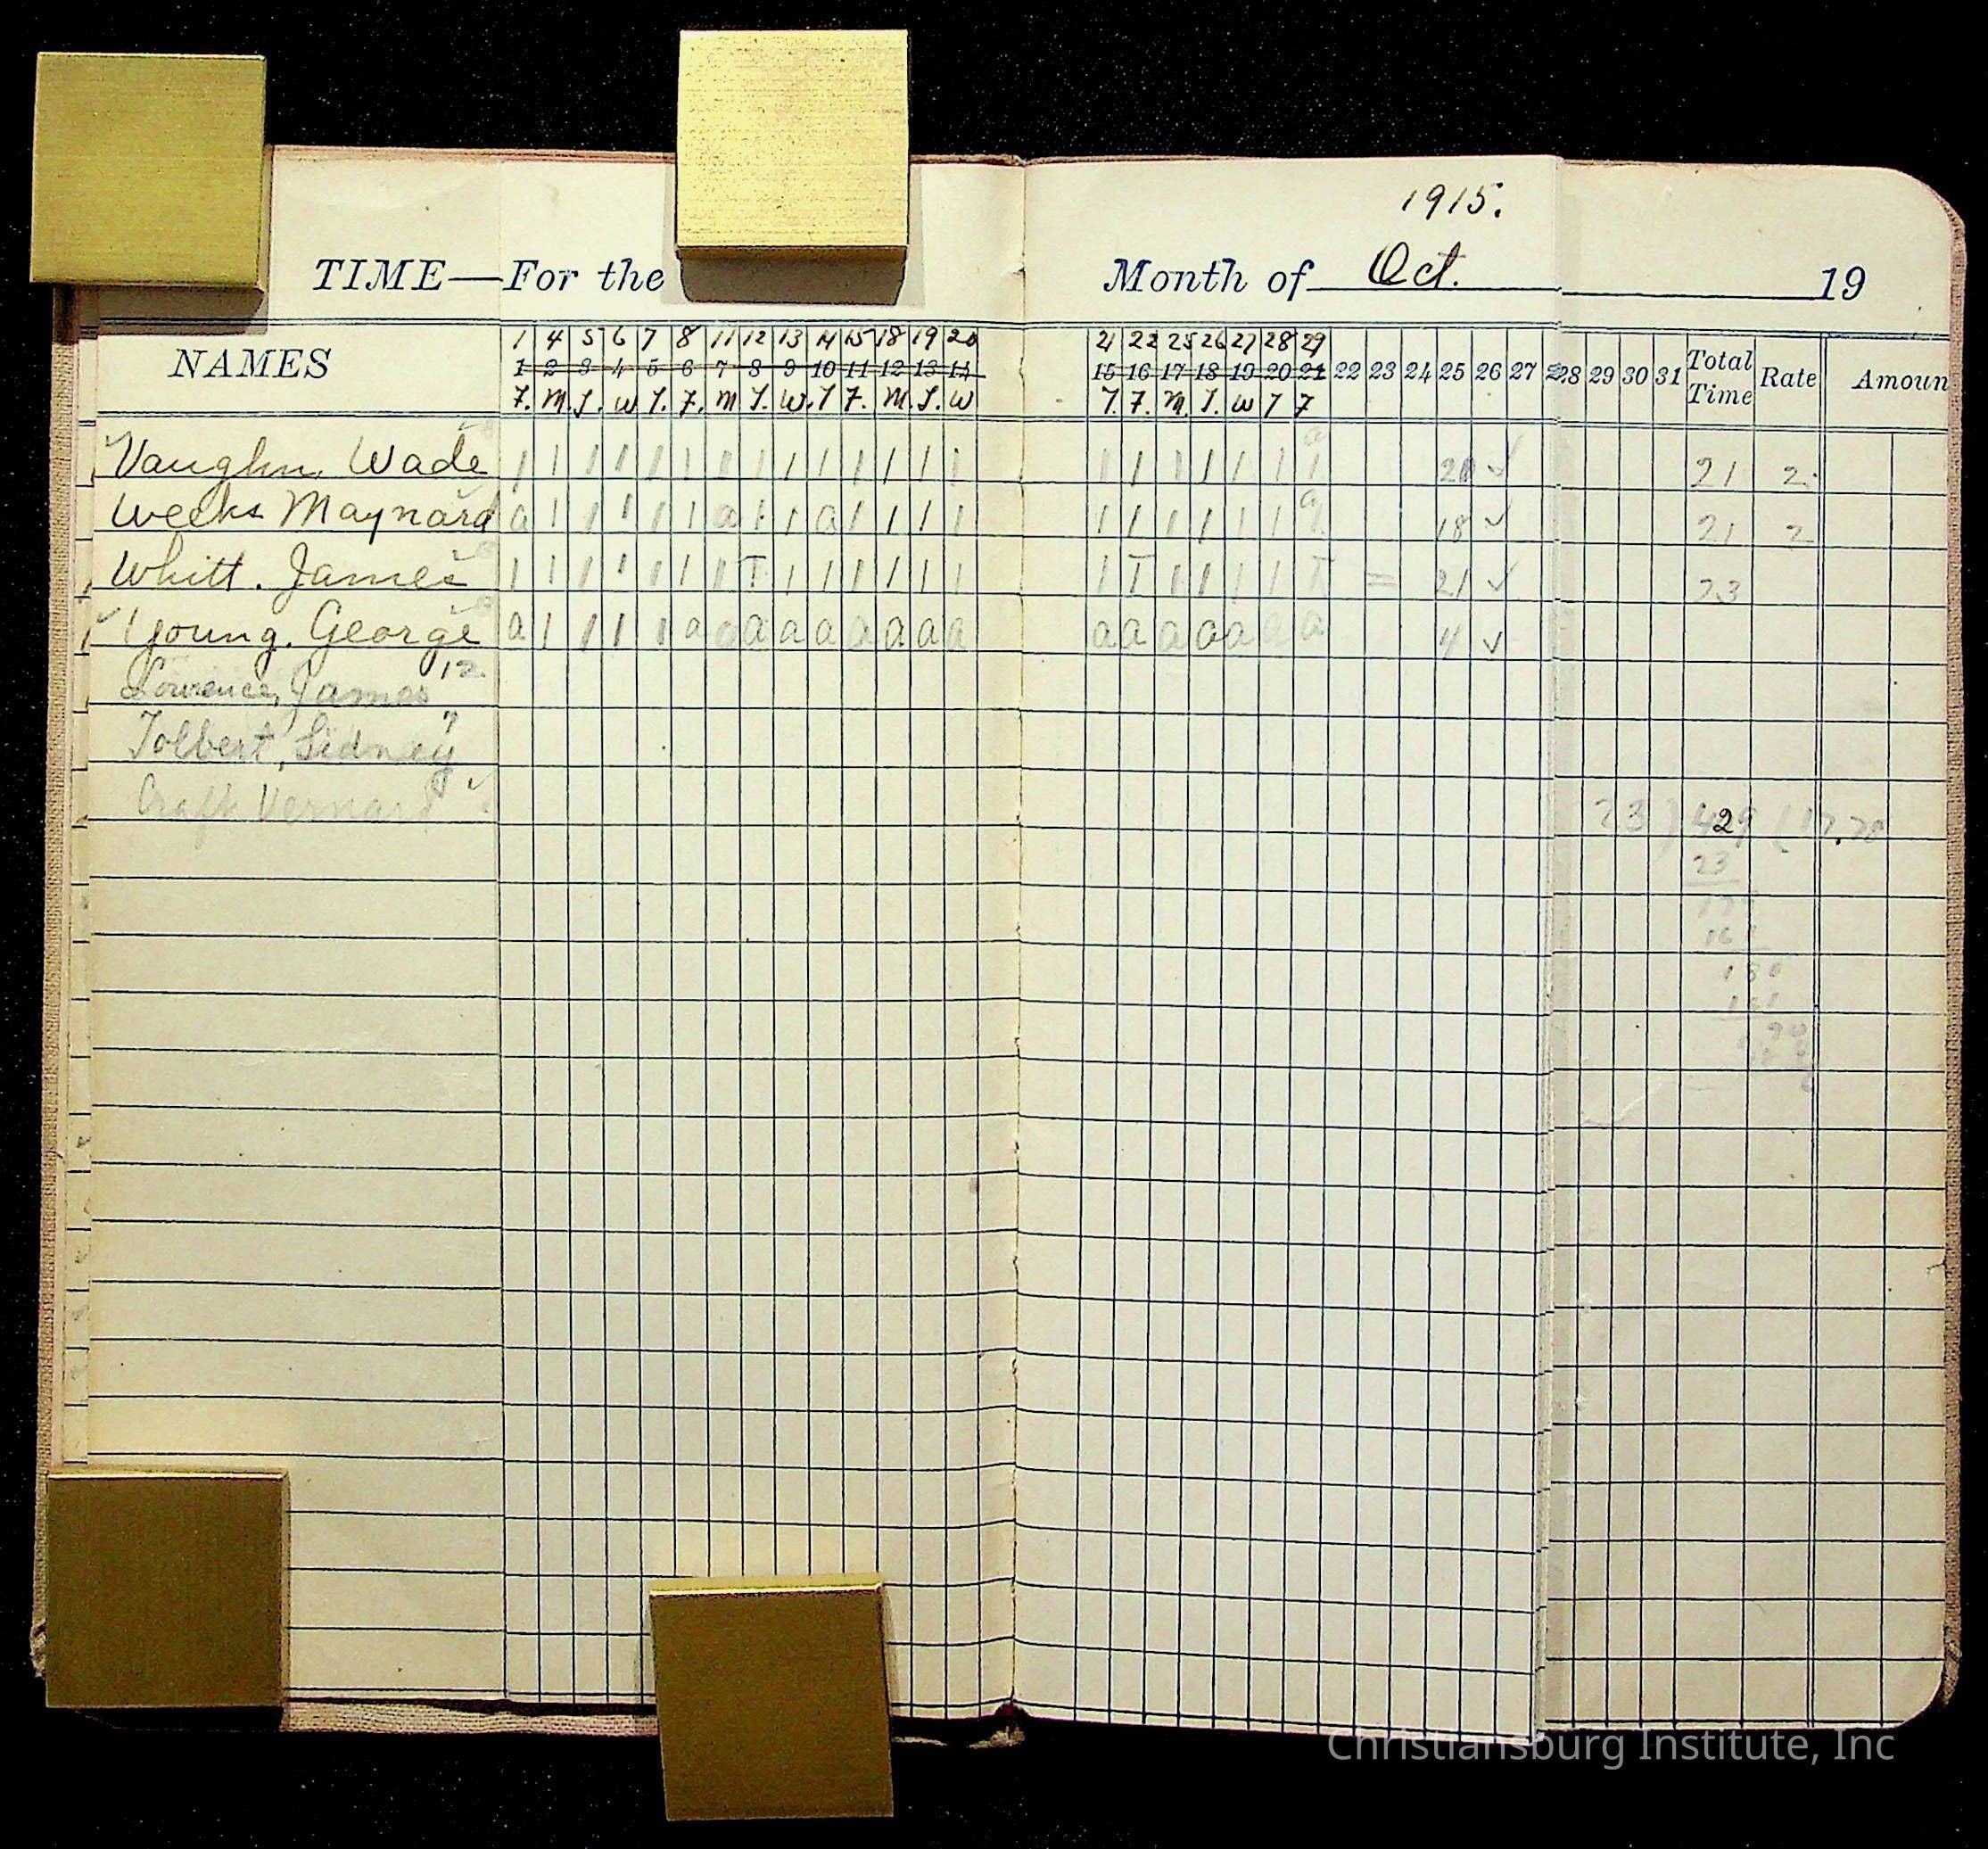 1915.
TIME—For the Month of Oct. 19
1 4 5 6 7 8 11 12 13 14 15 18 19 20 21 22 25 26 27 28 29
NAMES 1 2 3 4 5 6 7 8 9 10 11 12 13 14 15 16 17 18 19 20 21 22 23 24 25 26 27 28 29 30 31 Total Time Rate Amoun
F. M. T. W T. F. M T. W. T F. M. T. W T. F. M. T. W T F
Vaughn, Wade 1 1 1 1 1 1 1 1 1 1 1 1 1 1 1 1 1 1 1 1 1 a ✓ 21 2.
Weeks Maynard a 1 1 1 1 1 a 1 1 a 1 1 1 1 1 1 1 1 1 1 1 a 18 ✓ 21 2
Whitt. James 1 1 1 1 1 1 1 T 1 1 1 1 1 1 1 T 1 1 1 1 T = 21 ✓ 23
Young. George a 1 1 1 1 a a a a a a a a a a a a a a a a 4 ✓
Lowrence, James 12
Tolbert, Sidney "
Craft Vernard ✓
23 ) 429 (
23
161
180
161